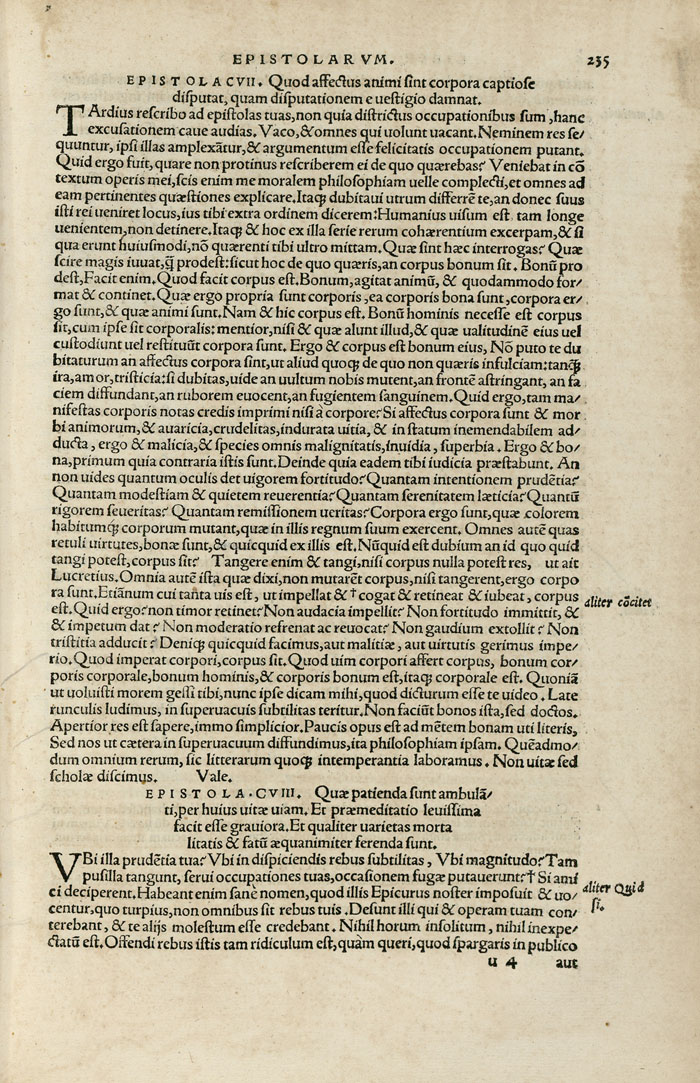 EPISTOLARVM. 235
EPISTOLA CVII. Quod affectus animi sint corpora captiose
disputat, quam disputationem e uestigio damnat.
TArdius rescribo ad epistolas tuas, non quia districtus occupationibus sum, hanc
excusationem caue audias. Vaco, & omnes qui uolunt uacant. Neminem res se/
quuntur, ipsi illas amplexātur, & argumentum esse felicitatis occupationem putant.
Quid ergo fuit, quare non protinus rescriberem ei de quo quærebas? Veniebat in cō
textum operis mei, scis enim me moralem philosophiam uelle complecti, et omnes ad
eam pertinentes quæstiones explicare. Itaq; dubitaui utrum differrē te, an donec suus
isti rei ueniret locus, ius tibi extra ordinem dicerem: Humanius uisum est tam longe
uenientem, non detinere. Itaq; & hoc ex illa serie rerum cohærentium excerpam, & si
qua erunt huiusmodi, nō quærenti tibi ultro mittam. Quæ sint hæc interrogas? Quæ
scire magis iuuat, q̄ prodest: sicut hoc de quo quæris, an corpus bonum sit. Bonū pro
dest, Facit enim. Quod facit corpus est. Bonum, agitat animū, & quodammodo for/
mat & continet. Quæ ergo propria sunt corporis, ea corporis bona sunt, corpora er/
go sunt, & quæ animi sunt. Nam & hic corpus est. Bonū hominis necesse est corpus
sit, cum ipse sit corporalis: mentior, nisi & quæ alunt illud, & quæ ualitudinē eius uel
custodiunt uel restituūt corpora sunt. Ergo & corpus est bonum eius, Nō puto te du
bitaturum an affectus corpora sint, ut aliud quoq; de quo non quæris infulciam: tanq̄
ira, amor, tristicia: si dubitas, uide an uultum nobis mutent, an frontē astringant, an fa
ciem diffundant, an ruborem euocent, an fugientem sanguinem. Quid ergo, tam ma/
nifestas corporis notas credis imprimi nisi à corpore? Si affectus corpora sunt & mor
bi animorum, & auaricia, crudelitas, indurata uitia, & in statum inemendabilem ad/
ducta, ergo & malicia, & species omnis malignitatis, inuidia, superbia. Ergo & bo/
na, primum quia contraria istis sunt. Deinde quia eadem tibi iudicia præstabunt. An
non uides quantum oculis det uigorem fortitudo? Quantam intentionem prudētia?
Quantam modestiam & quietem reuerentia? Quantam serenitatem læticia? Quantū
rigorem seueritas? Quantam remissionem ueritas? Corpora ergo sunt, quæ colorem
habitumq; corporum mutant, quæ in illis regnum suum exercent. Omnes autē quas
retuli uirtutes, bonæ sunt, & quicquid ex illis est. Nūquid est dubium an id quo quid
tangi potest, corpus sit? Tangere enim & tangi, nisi corpus nulla potest res, ut ait
Lucretius. Omnia autē ista quæ dixi, non mutarēt corpus, nisi tangerent, ergo corpo
ra sunt. Etiānum cui tanta uis est, ut impellat & †cogat & retineat & iubeat, corpus
aliter cōcitet
est. Quid ergo? non timor retinet? Non audacia impellit? Non fortitudo immittit, &
& impetum dat? Non moderatio refrenat ac reuocat? Non gaudium extollit? Non
tristitia adducit? Deniq; quicquid facimus, aut malitiæ, aut uirtutis gerimus impe/
rio. Quod imperat corpori, corpus sit. Quod uim corpori affert corpus, bonum cor/
poris corporale, bonum hominis, & corporis bonum est, itaq; corporale est. Quoniā
ut uoluisti morem gessi tibi, nunc ipse dicam mihi, quod dicturum esse te uideo. Late
runculis ludimus, in superuacuis subtilitas teritur. Non faciūt bonos ista, sed doctos.
Apertior res est sapere, immo simplicior. Paucis opus est ad mētem bonam uti literis,
Sed nos ut cætera in superuacuum diffundimus, ita philosophiam ipsam. Quēadmo/
dum omnium rerum, sic litterarum quoq; intemperantia laboramus. Non uitæ sed
scholæ discimus. Vale.
EPISTOLA. CVIII. Quæ patienda sunt ambulā/
ti, per huius uitæ uiam. Et præmeditatio leuissima
facit esse grauiora. Et qualiter uarietas morta
litatis & fatū æquanimiter ferenda sunt.
VBi illa prudētia tua? Vbi in dispiciendis rebus subtilitas, Vbi magnitudo? Tam
pusilla tangunt, serui occupationes tuas, occasionem fugæ putauerunt? † Si ami
aliter Quid
si.
ci deciperent. Habeant enim sanè nomen, quod illis Epicurus noster imposuit & uo/
centur, quo turpius, non omnibus sit rebus tuis. Desunt illi qui & operam tuam con/
terebant, & te alijs molestum esse credebant. Nihil horum insolitum, nihil inexpe/
ctatū est. Offendi rebus istis tam ridiculum est, quàm queri, quod spargaris in publico
u 4 aut